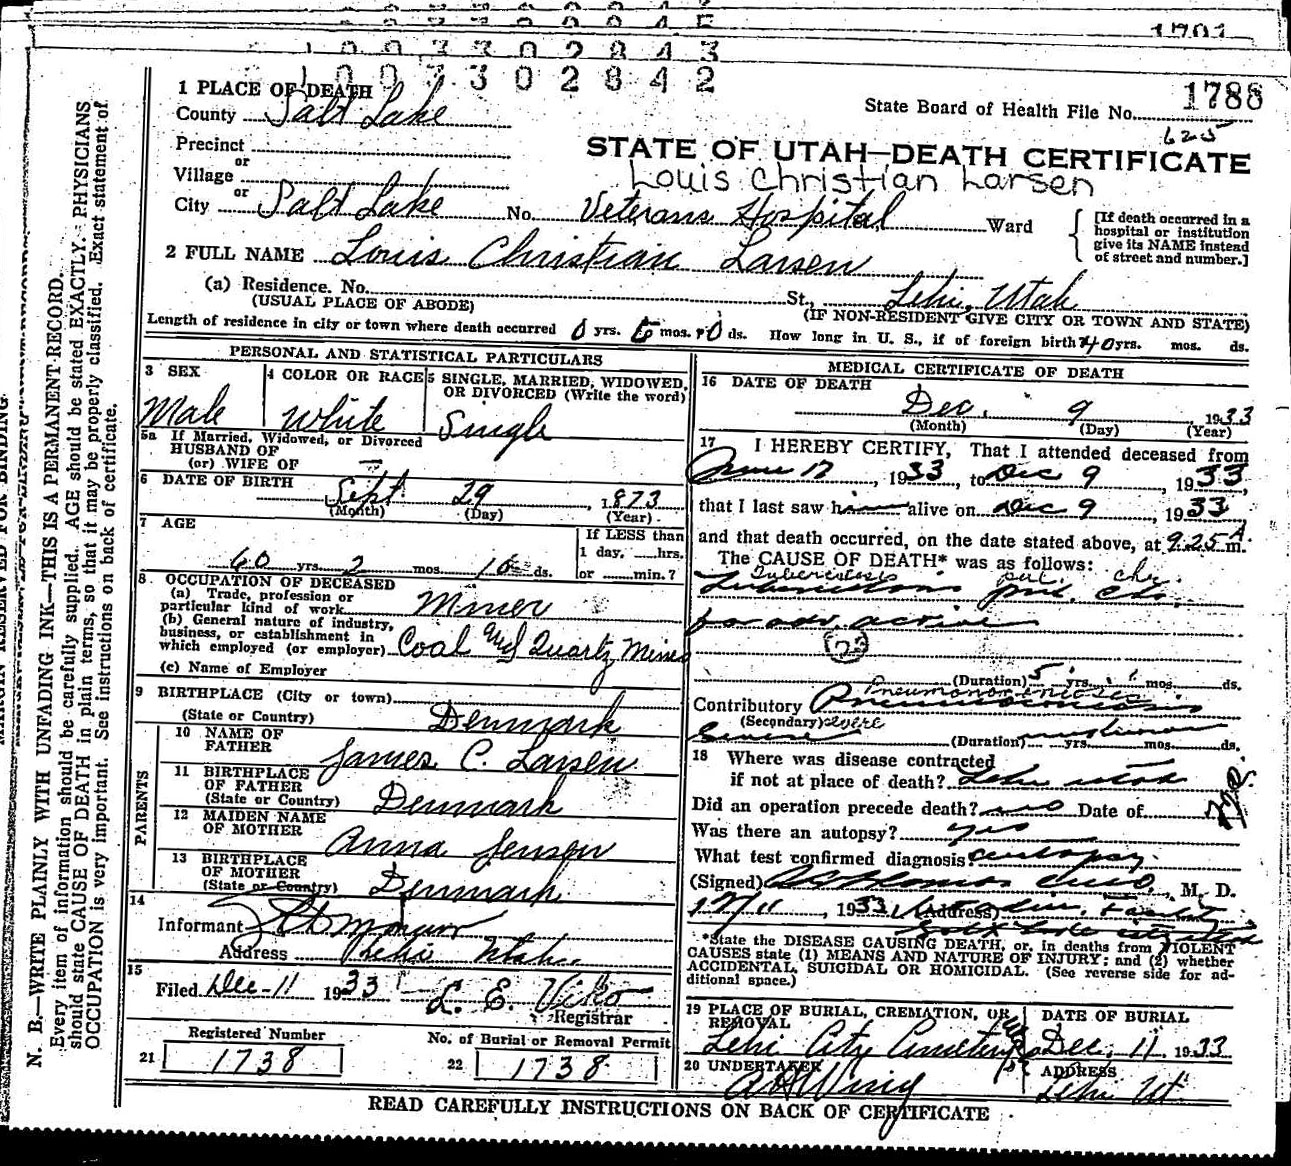 1 0 0 7 3 0 2 8 4 3
1 0 0 7 3 0 2 8 4 2
1788
State Board of Health File No.
625
STATE OF UTAH—DEATH CERTIFICATE
Louis Christian Larsen
1 PLACE OF DEATH
County Salt Lake
Precinct
or
Village
or
City Salt Lake No. Veterans Hospital St., Ward
[If death occurred in a
hospital or institution
give its NAME instead
of street and number.]
2 FULL NAME Louis Christian Larsen
(a) Residence. No. St., Lehi, Utah
(USUAL PLACE OF ABODE) (IF NON-RESIDENT GIVE CITY OR TOWN AND STATE)
Length of residence in city or town where death occurred 0 yrs. mos. ds. How long in U. S., if of foreign birth 40 yrs. mos. ds.
PERSONAL AND STATISTICAL PARTICULARS
3 SEX Male
4 COLOR OR RACE White
5 SINGLE, MARRIED, WIDOWED, OR DIVORCED (Write the word) Single
5a If Married, Widowed, or Divorced
HUSBAND OF
(or) WIFE OF —
6 DATE OF BIRTH Sept 29, 1873
(Month) (Day) (Year)
7 AGE 60 yrs. 2 mos. 10 ds.
If LESS than
1 day, hrs.
or min.?
8 OCCUPATION OF DECEASED
(a) Trade, profession or
particular kind of work Miner
(b) General nature of industry,
business, or establishment in
which employed (or employer) Coal and Quartz Mines
(c) Name of Employer
9 BIRTHPLACE (City or town)
(State or Country) Denmark
PARENTS
10 NAME OF
FATHER James C. Larsen
11 BIRTHPLACE
OF FATHER
(State or Country) Denmark
12 MAIDEN NAME
OF MOTHER Anna Jensen
13 BIRTHPLACE
OF MOTHER
(State or Country) Denmark
14
Informant
Address Lehi Utah
15
Filed Dec-11 1933 L. E. Viko
Registrar
Registered Number
21 1738
No. of Burial or Removal Permit
22 1738
MEDICAL CERTIFICATE OF DEATH
16 DATE OF DEATH
Dec. 9 1933
(Month) (Day) (Year)
17 I HEREBY CERTIFY, That I attended deceased from
June 12, 1933, to Dec 9, 1933,
that I last saw him alive on Dec 9, 1933
and that death occurred, on the date stated above, at 9.25 A m.
The CAUSE OF DEATH* was as follows:
Tuberculosis pul. chr.
Tuberculosis pul. chr.
far adv. active
23
(Duration) 5 yrs. ? mos. ds.
Pneumonoconiosis
Contributory Pneumoconiosis
(Secondary) severe
Severe (Duration) unknown yrs. mos. ds.
18 Where was disease contracted
if not at place of death? Lehi Utah
Did an operation precede death? no Date of
Was there an autopsy? yes
What test confirmed diagnosis? autopsy.
(Signed) M. D.
12/11, 1933 (Address) Veterans Facility
Salt Lake City Utah
*State the DISEASE CAUSING DEATH, or, in deaths from VIOLENT
CAUSES state (1) MEANS AND NATURE OF INJURY; and (2) whether
ACCIDENTAL, SUICIDAL OR HOMICIDAL. (See reverse side for ad-
ditional space.)
19 PLACE OF BURIAL, CREMATION, OR
REMOVAL
Lehi City Cemetery
DATE OF BURIAL
Dec. 11, 1933
20 UNDERTAKER
A H Wing
ADDRESS
Lehi Ut.
READ CAREFULLY INSTRUCTIONS ON BACK OF CERTIFICATE
N. B.—WRITE PLAINLY WITH UNFADING INK—THIS IS A PERMANENT RECORD.
Every item of information should be carefully supplied. AGE should be stated EXACTLY. PHYSICIANS
should state CAUSE OF DEATH in plain terms, so that it may be properly classified. Exact statement of
OCCUPATION is very important. See instructions on back of certificate.